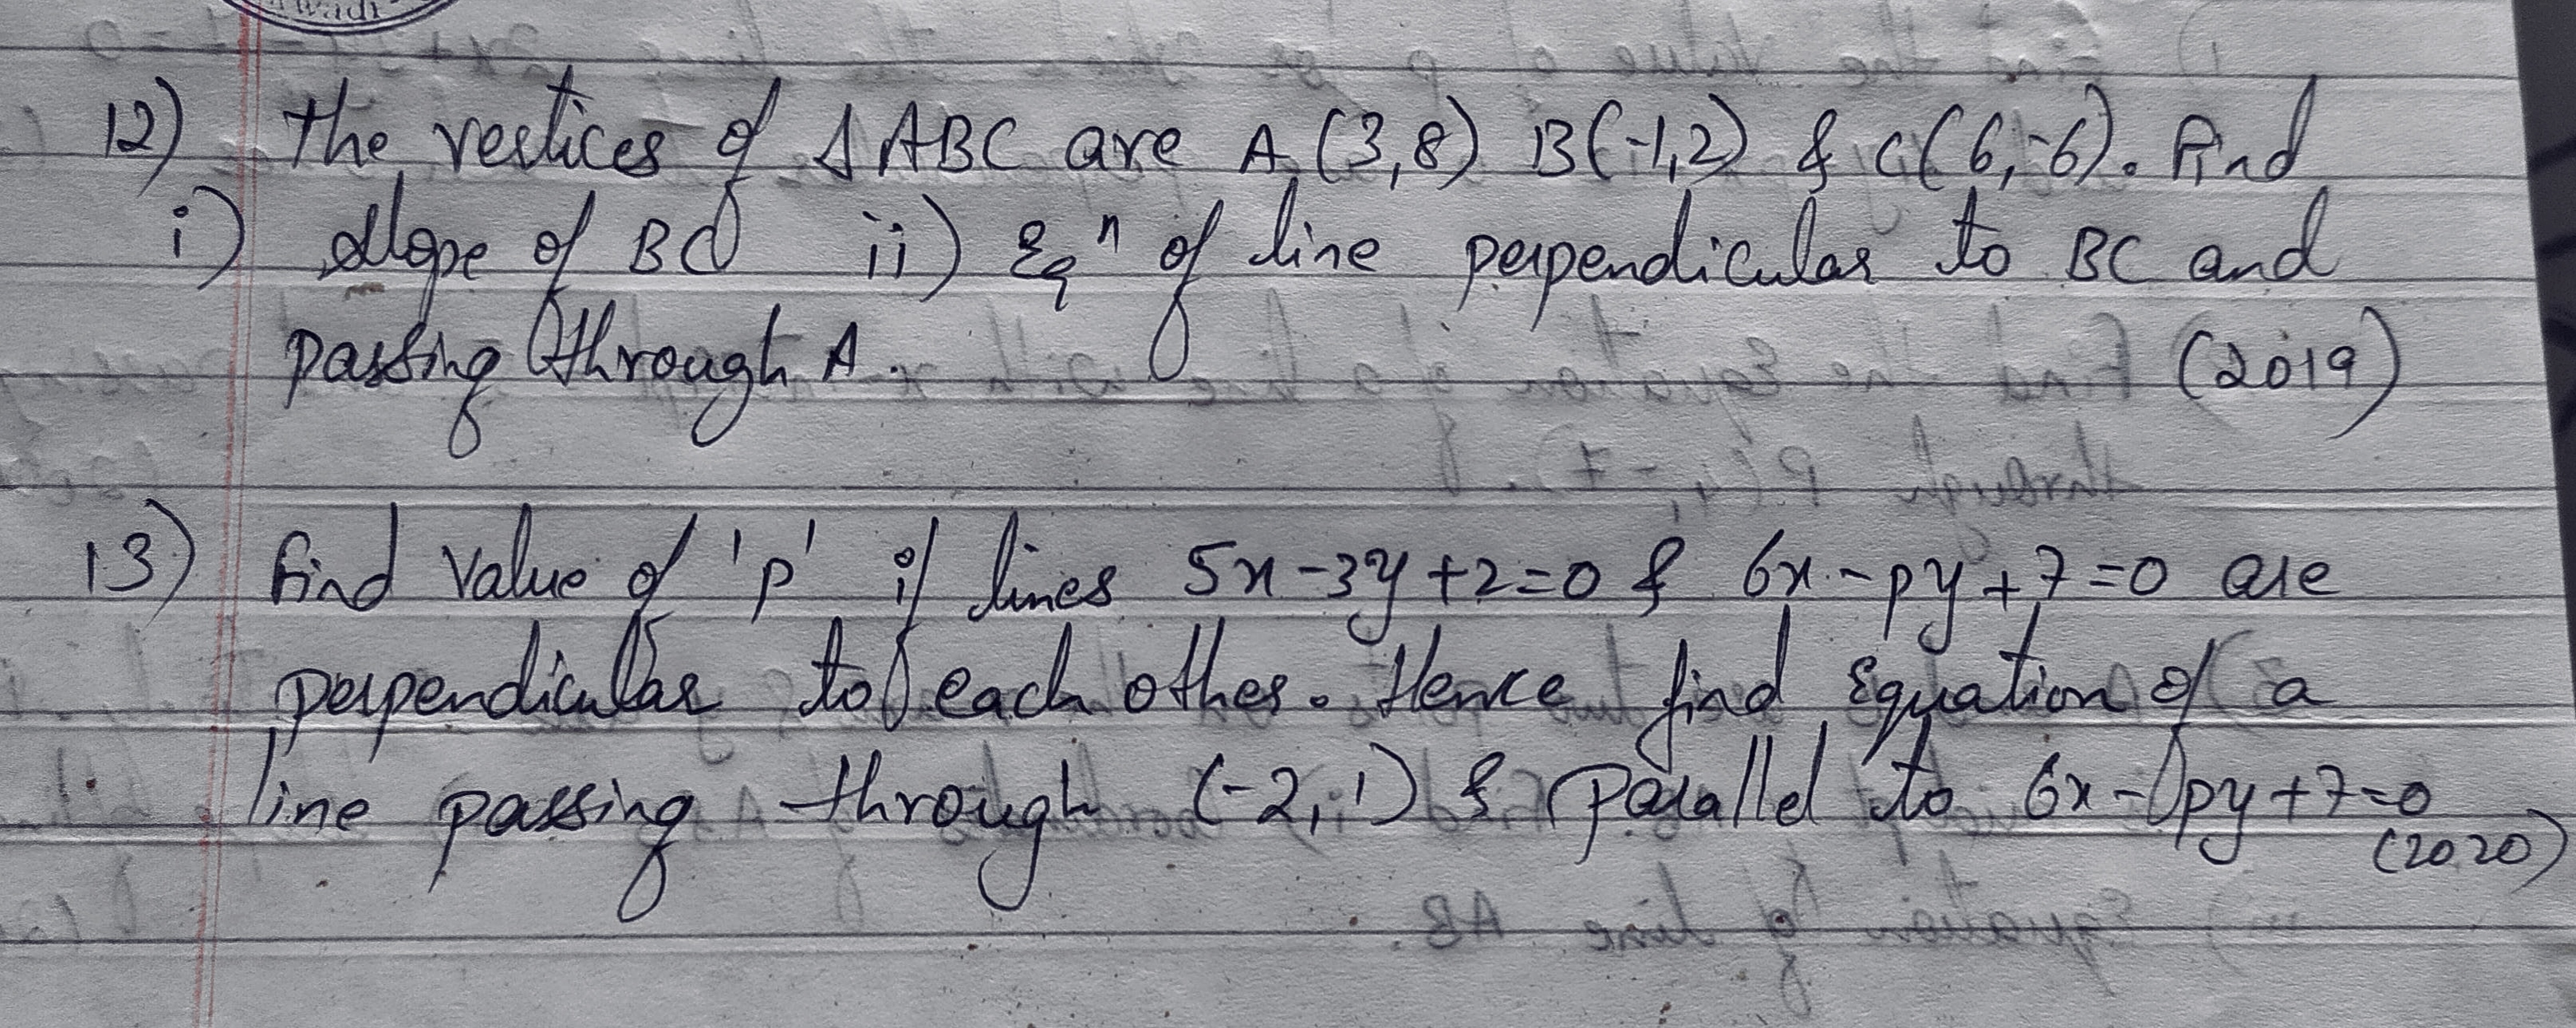 wadi
12) The vertices of Δ ABC are A (3,8) B(-1,2) & C(6,-6). Find
i) slope of BC ii) Eqⁿ of line perpendicular to BC and
passing through A. (2019)
13) Find value of 'p' if lines 5x-3y+2=0 & 6x-py+7=0 are
perpendicular to each other. Hence find Equation of a
line passing through (-2,1) & parallel to 6x-py+7=0
(2020)